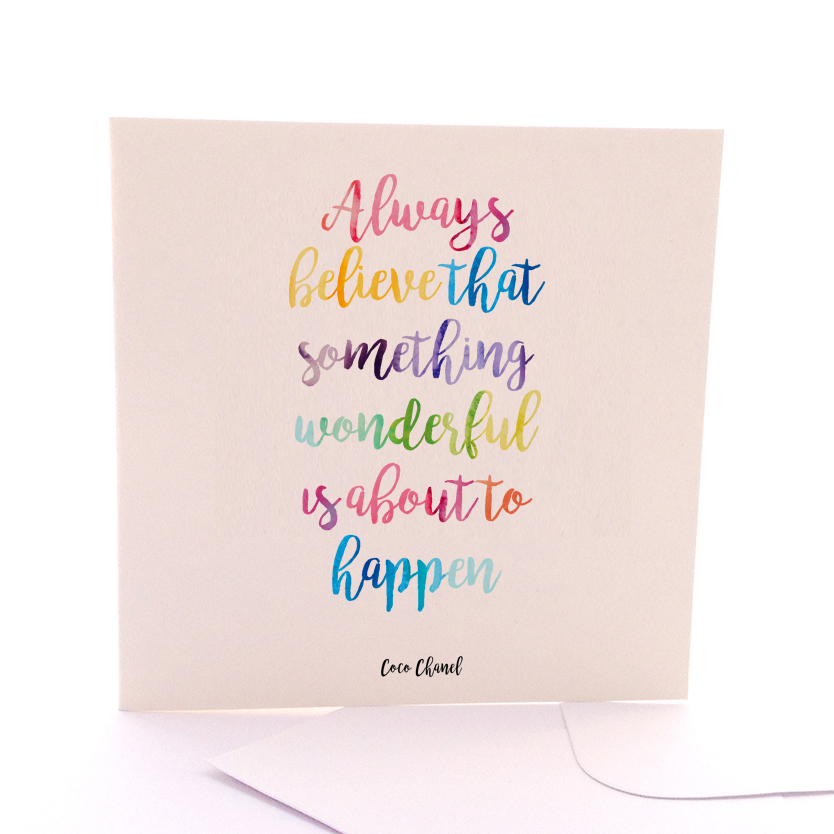 Always
believe that
something
wonderful
is about to
happen
Coco Chanel